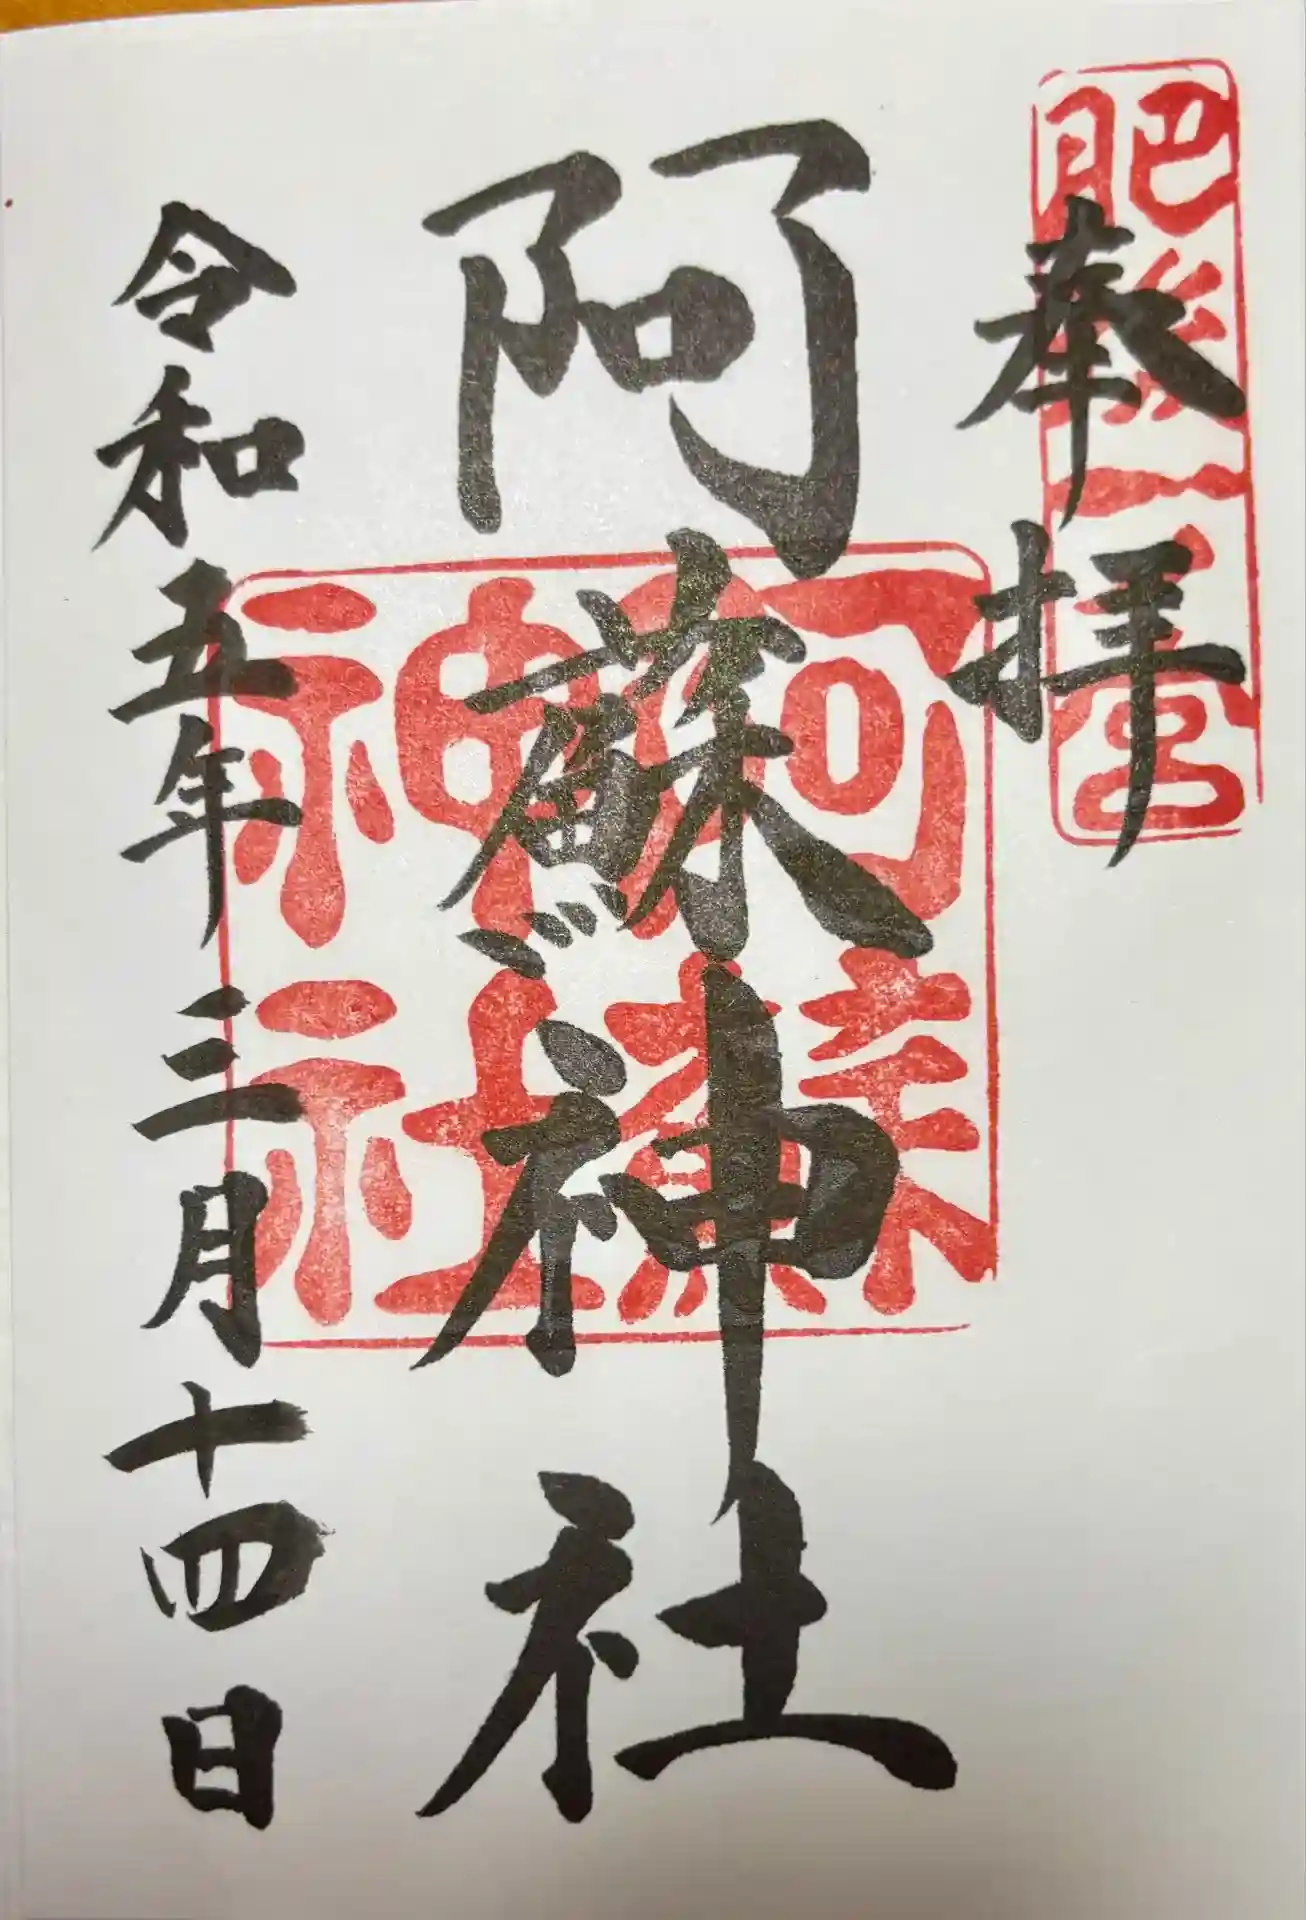 肥後一宮
奉拝
阿蘇神社
阿蘇神社
令和五年三月十四日